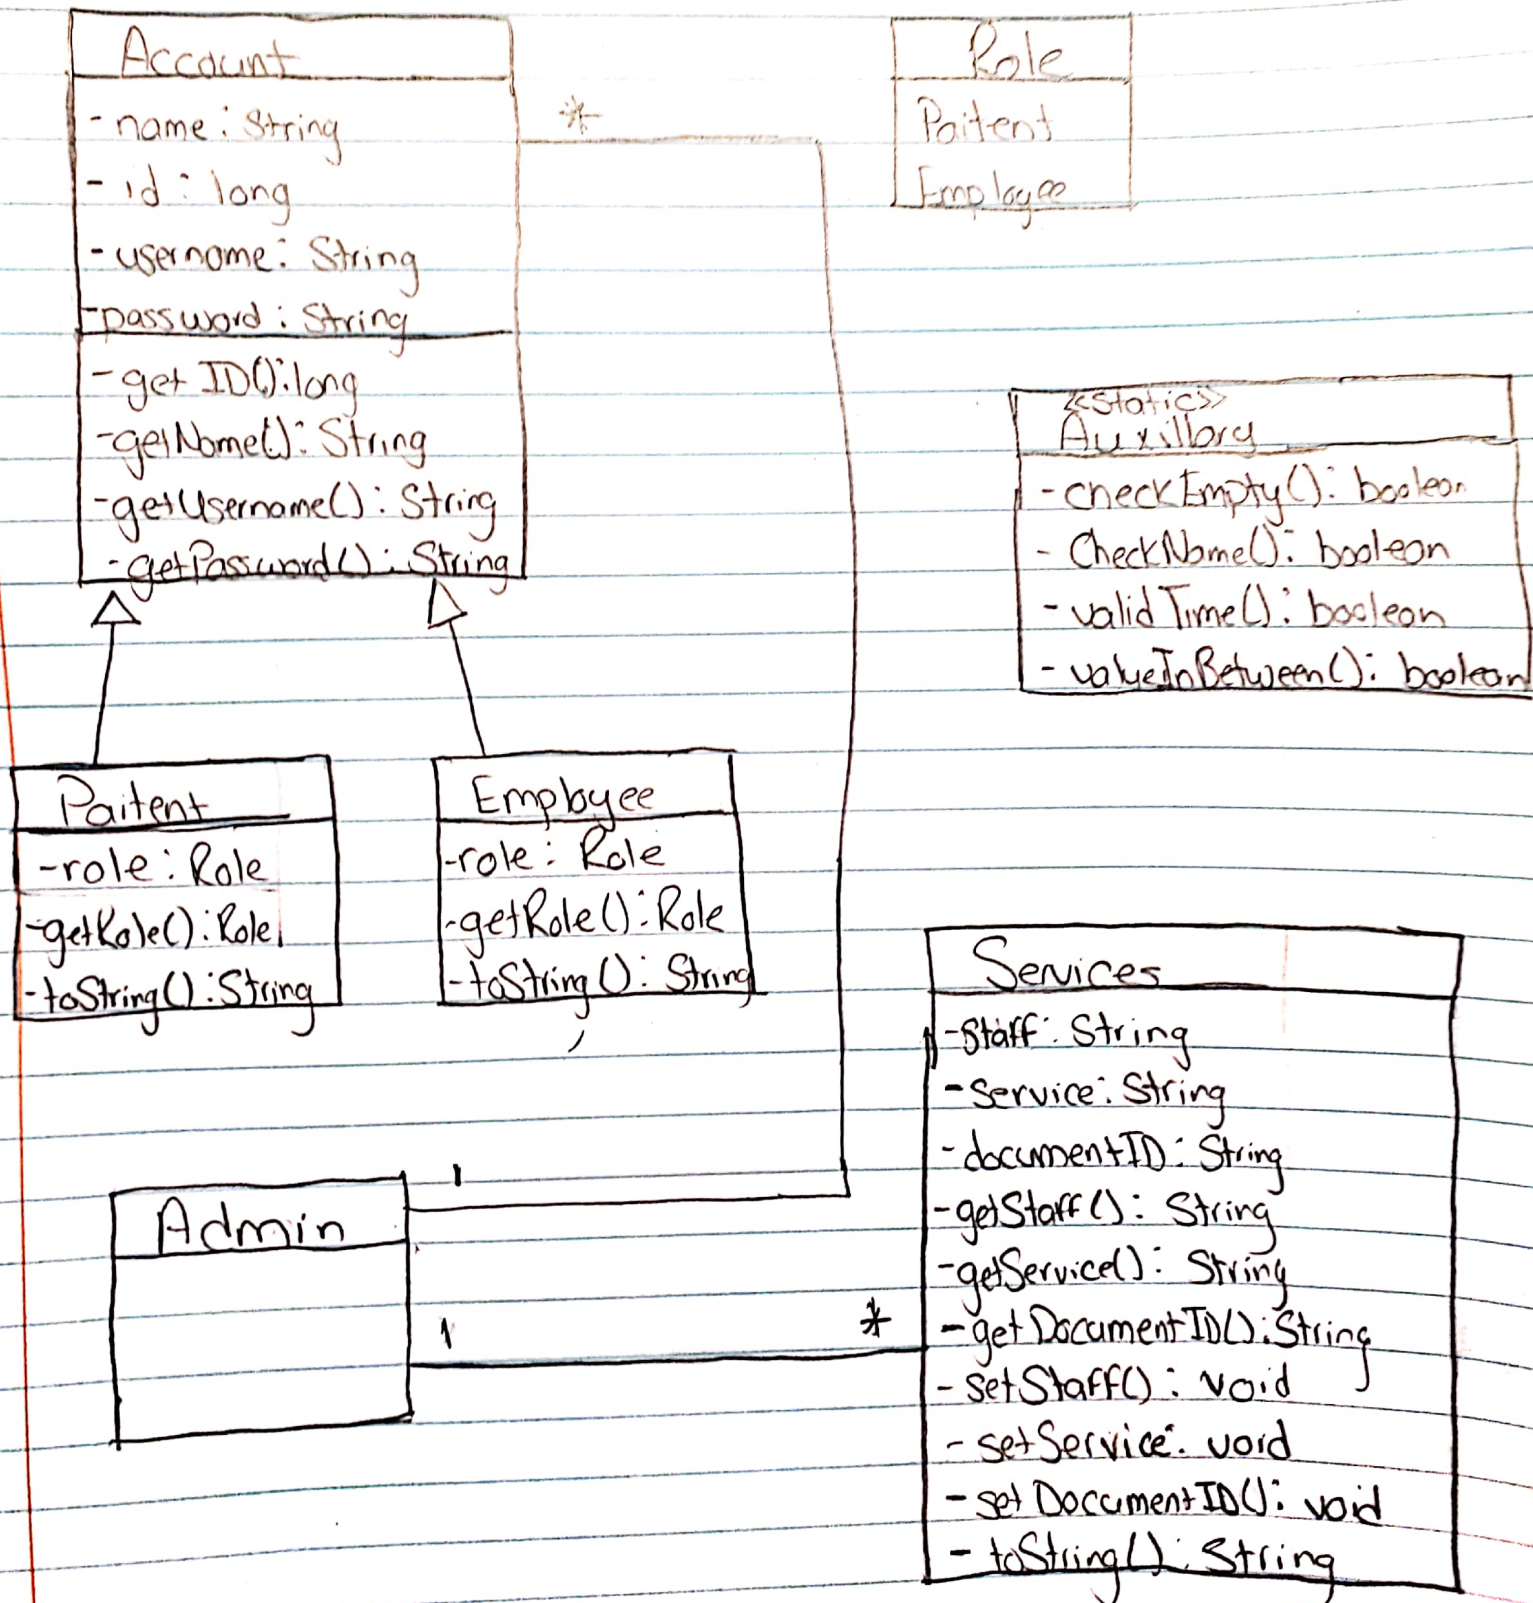 Account
- name: String
- id: long
- username: String
- password: String
- getID(): long
- getName(): String
- getUsername(): String
- getPassword(): String
*
Role
Paitent
Employee
<<Static>>
Auxillary
- checkEmpty(): boolean
- CheckName(): boolean
- validTime(): boolean
- valueInBetween(): boolean
Paitent
- role: Role
- getRole(): Role
- toString(): String
Employee
- role: Role
- getRole(): Role
- toString(): String
Admin
1
1
*
Services
- Staff: String
- Service: String
- documentID: String
- getStaff(): String
- getService(): String
- getDocumentID(): String
- setStaff(): void
- setService: void
- setDocumentID(): void
- toString(): String